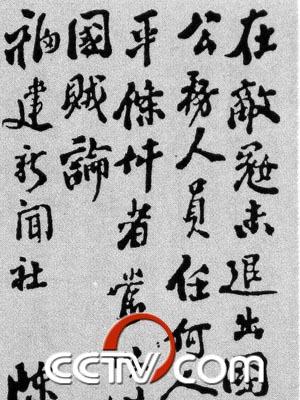 在敵寇未退出國
公務人員任何人
平條件者當
國賊論
福建新聞社 陳
CCTV.com